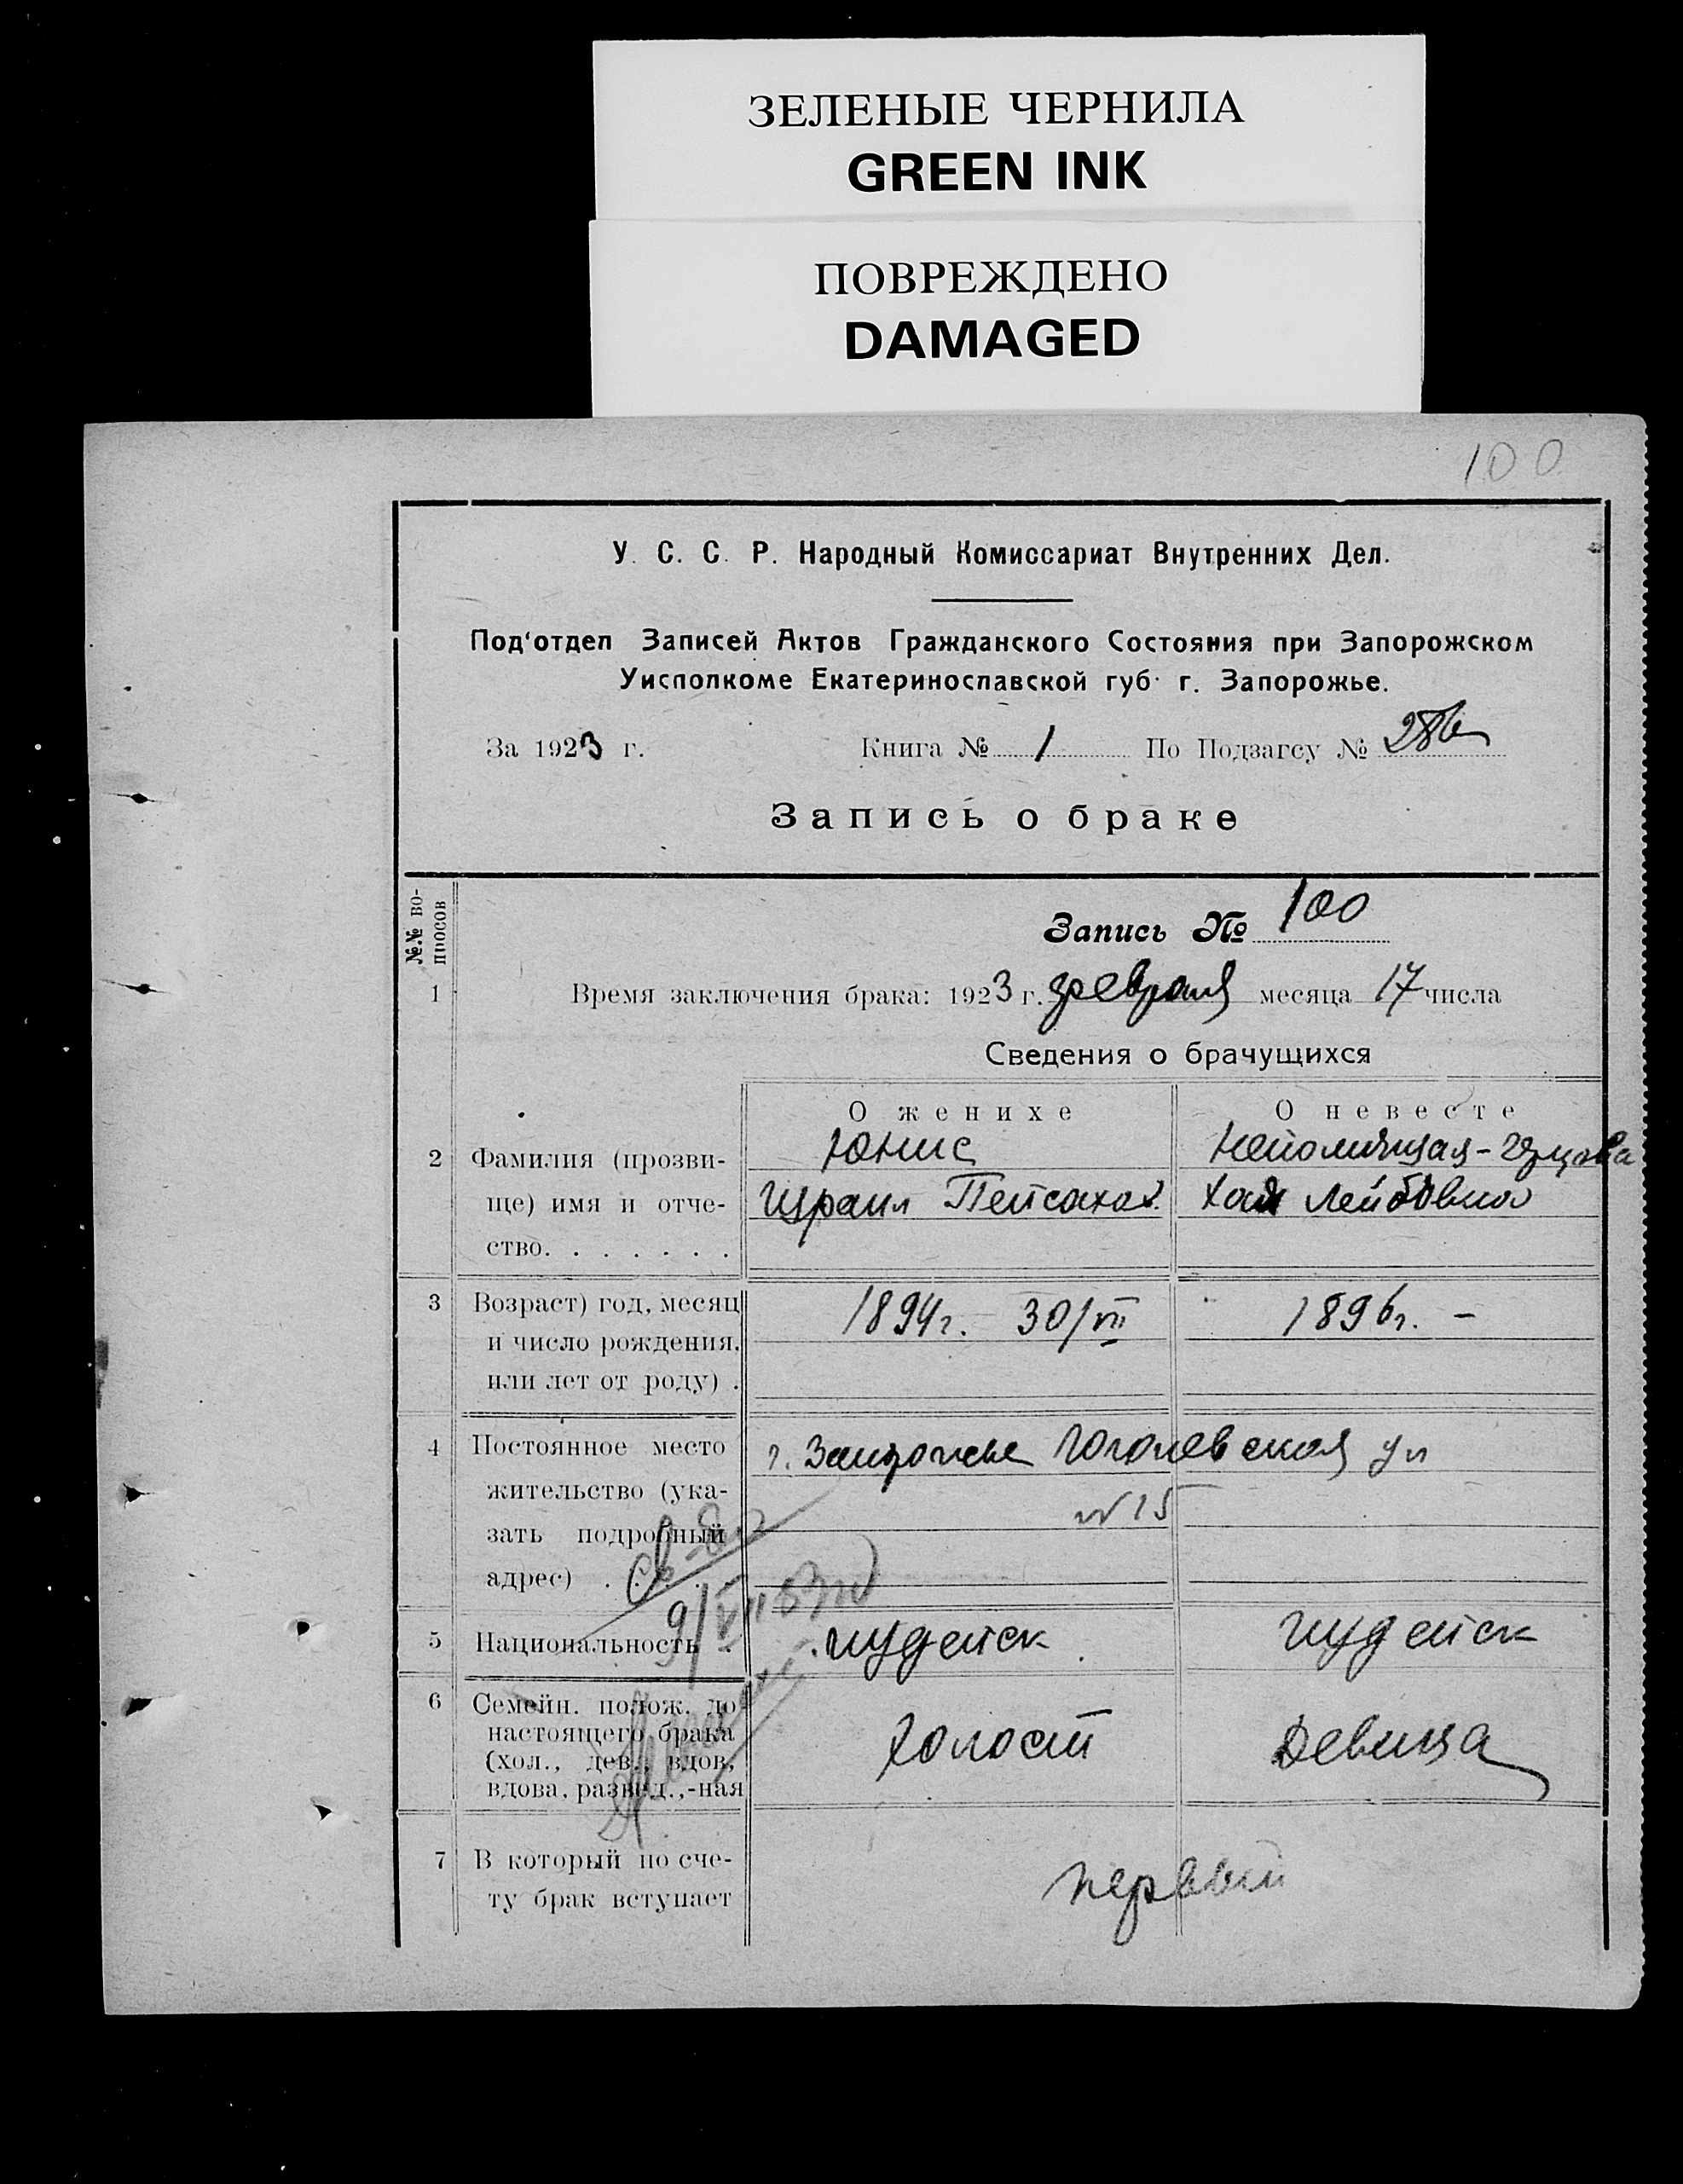 ЗЕЛЕНЫЕ ЧЕРНИЛА
GREEN INK
ПОВРЕЖДЕНО
DAMAGED
100
У. С. С. Р. Народный Комиссариат Внутренних Дел.
Под‘отдел Записей Актов Гражданского Состояния при Запорожском
Уисполкоме Екатеринославской губ. г. Запорожье.
За 1923 г. Книга № 1 По Подзагсу №
Запись о браке
№.№ во-
просов
Запись № 100
1 Время заключения брака: 1923 г. февраля месяца 17 числа
Сведения о брачущихся
О женихе О невесте
2 Фамилия (прозви- Юнис Непомнящая-
ще) имя и отче- Израил Пейсахов. Хая Лейбовна
ство. . . . . . .
3 Возраст) год, месяц 1894г. 30/VII 1896г. -
и число рождения.
или лет от роду) .
4 Постоянное место г. Запорожье Гоголевская ул
жительство (ука- №15
зать подробный
адрес) . . . .
5 Национальность . иудейск. иудейск
6 Семейн. полож. до
настоящего брака
(хол., дев., вдов, холост девица
вдова, развед.,-ная
7 В который по сче- первый
ту брак вступает